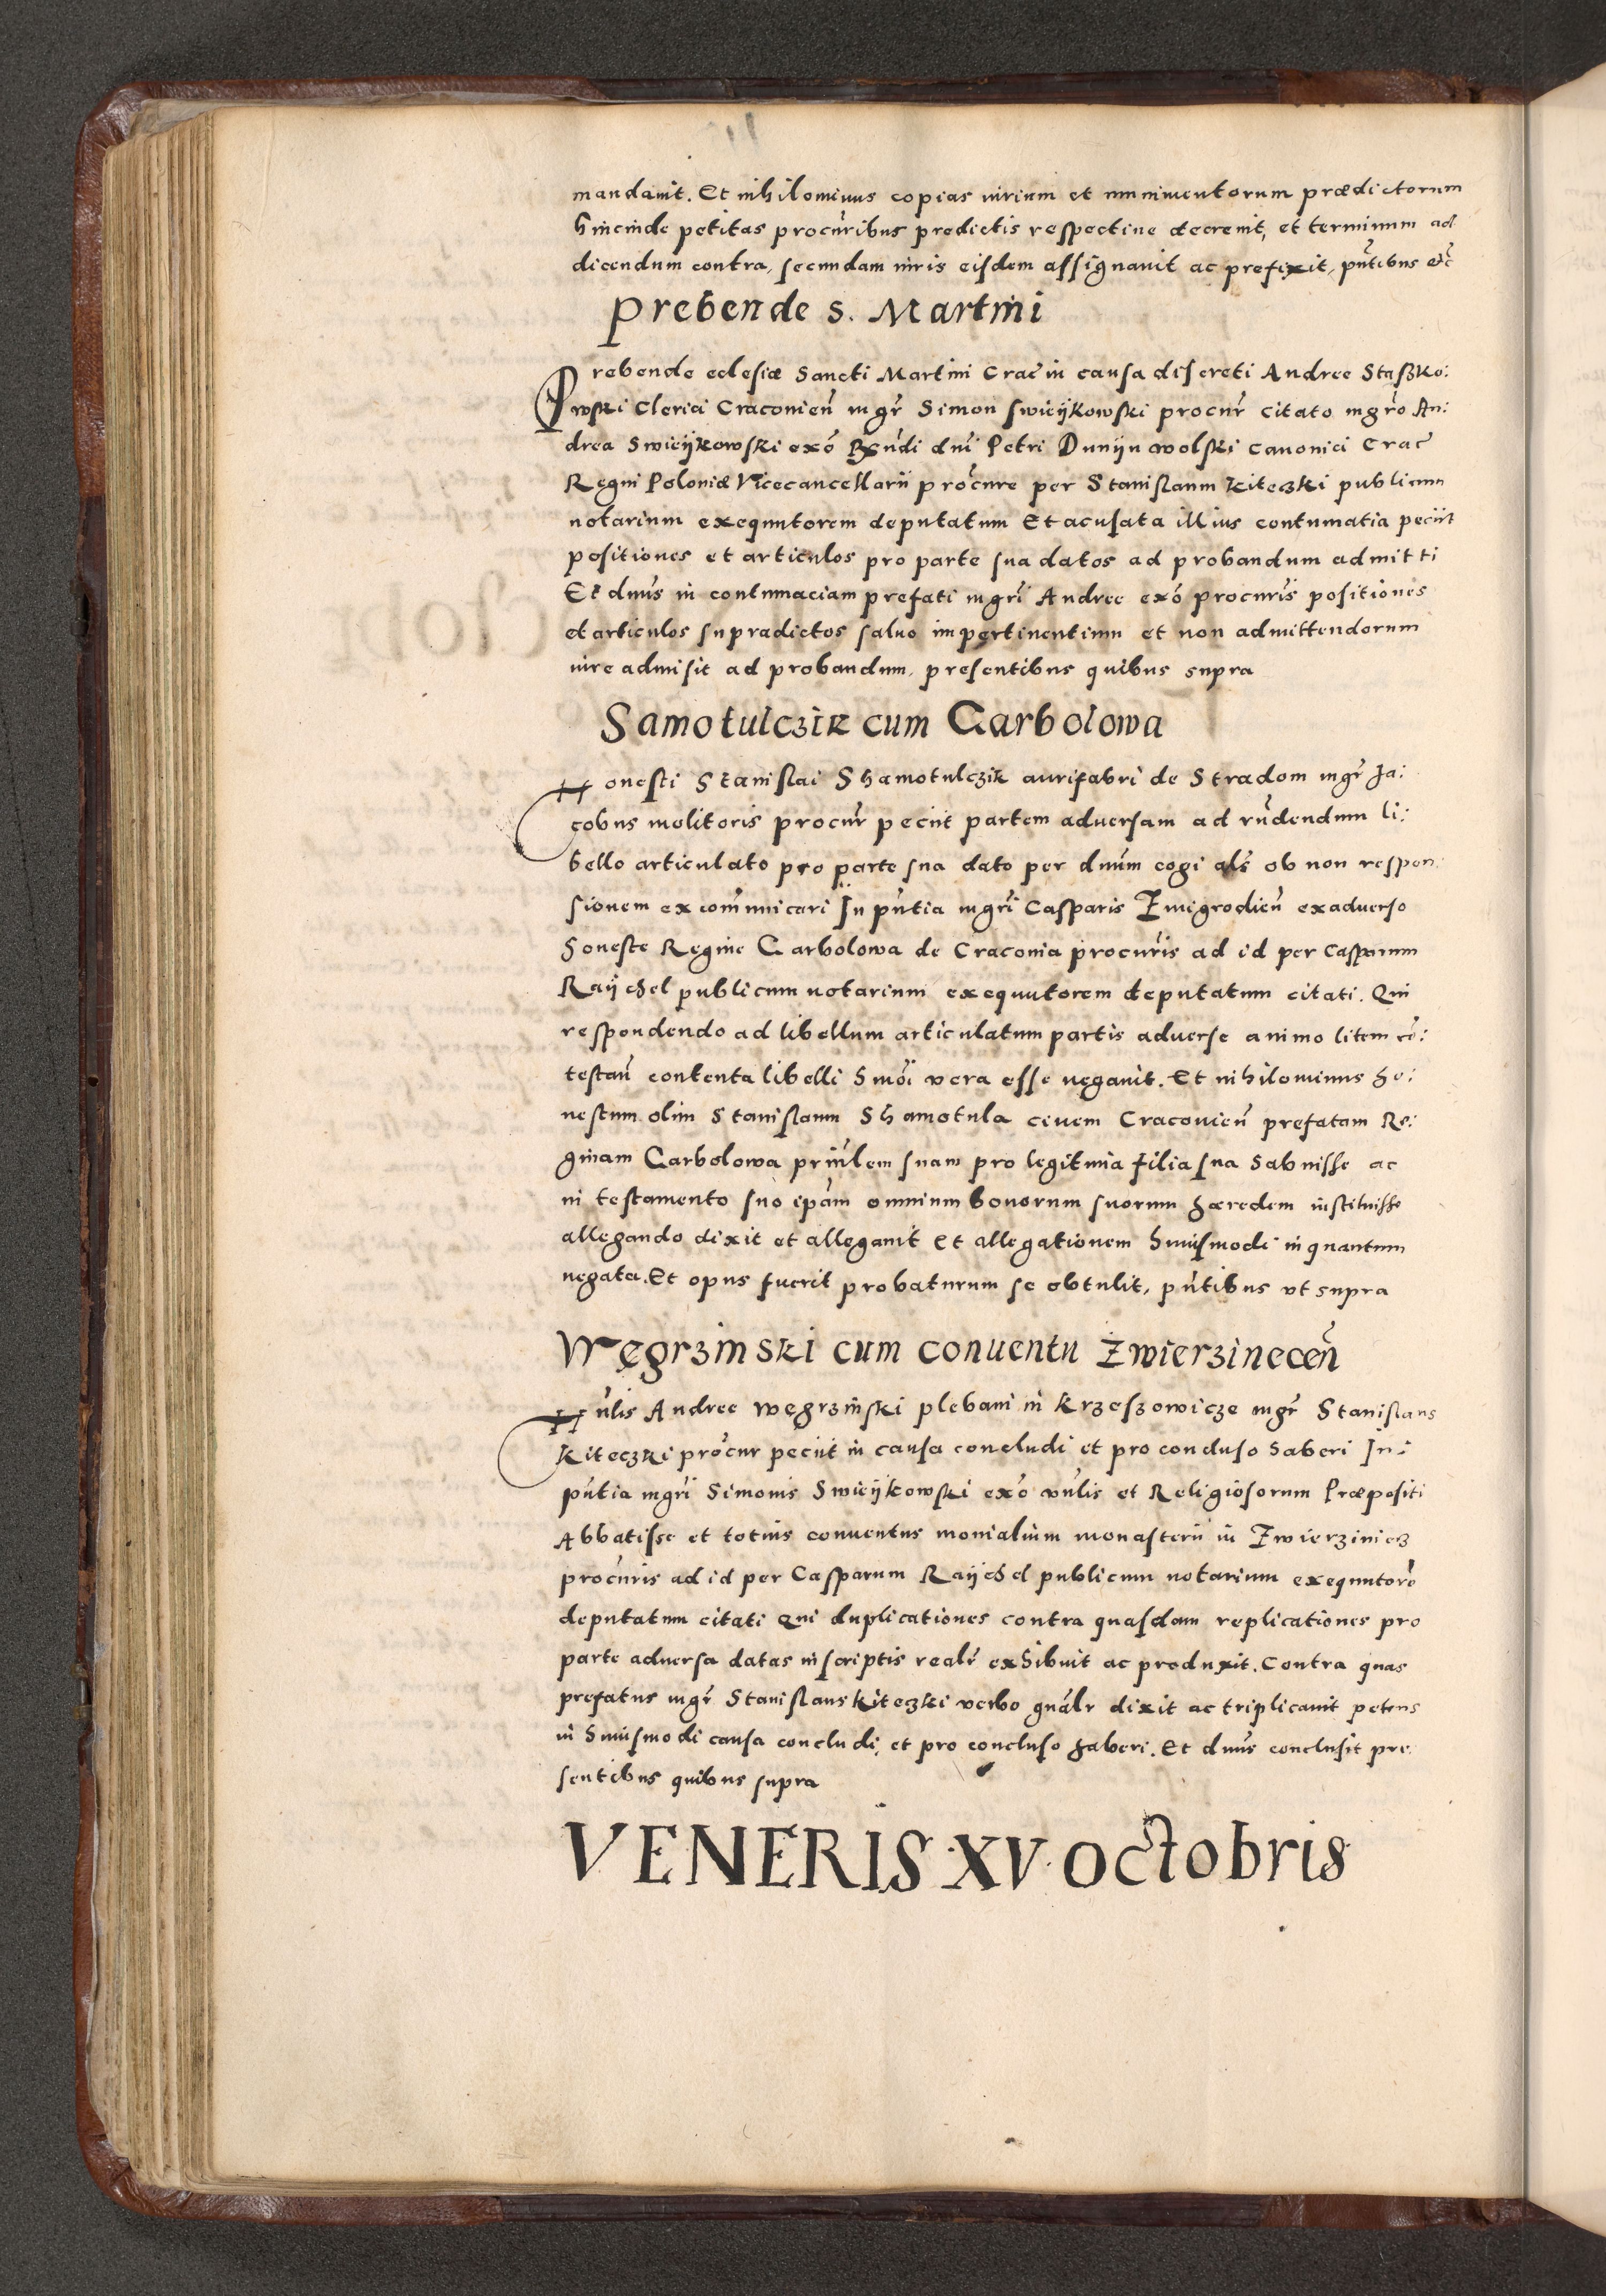 mandauit. Et nihilominus copias iurium et munimentorum prædictorum
hincinde petitas procuribus predictis respectiue decreuit, et terminum ad
dicendum contra, secundam iuris eisdem assignauit ac prefixit, pñtibus etc̃
Prebende s. Martini
Prebende eclesiæ Sancti Martini Crac̃ in causa discreti Andree Staszko:
wski Clerici Craconieñ mgr̃ Simon Swieÿkowski procur̃ citato mgr̃o An:
drea Swieÿkowski exõ Rñdi dñi Petri Duniÿn wolski Canonici Crac̃
Regni Poloniæ Vicecancellarii procũre per Stanislaum Kiteczki publicum
notarium exequutorem deputatum Et acusata illius contumatia peciit
positiones et articulos pro parte sua datos ad probandum admitti
Et dñus in contumaciam prefati mgr̃i Andree exõ procur̃is positiones
et articulos supradictos saluo impertinentium et non admittendorum
iure admisit ad probandum, presentibus quibus supra
Samotulczik cum Garbolowa
Honesti Stanislai Shamotulczik aurifabri de Stradom mgr̃ Ja:
cobus molitoris procur̃ peciit partem aduersam ad rñdendum li:
bello articulato pro parte sua dato per dñum cogi als̃ ob non respon:
sionem excom̃unicari In pñtia mgr̃i Casparis Zmigrodieñ exaduerso
honeste Regine Garbolowa de Craconia procur̃is ad id per Casparum
Raÿchel publicum notarium exequutorem deputatum citati. Qui
respondendo ad libellum articulatum partis aduerse animo litem cõ:
testañ contenta libelli hmõi vera esse negauit. Et nihilominus ho:
nestum olim Stanislaum Shamotula ciuem Cracouieñ prefatam Re:
ginam Garbolowa priũlem suam pro legitima filia sua habuisse ac
in testamento suo ipãm omnium bonorum suorum hæredem instituisse
allegando dixit et allegauit Et allegationem huiusmodi inquantum
negata. Et opus fuerit probaturum se obtulit, pñtibus vt supra
Węgrzinski cum conuentu Zwierzineceñ
Hñlis Andree Węgrzinski plebani in Krzeszowicze mgr̃ Stanislaus
Kiteczki procũr peciit in causa concludi et pro concluso haberi In:
pñtia mgr̃i Simonis Swieÿkowski exõ vñlis et Religiosorum Præpositi
Abbatisse et totius conuentus monialium monasterii in Zwierziniecz
procũris ad id per Casparum Raÿchel publicum notarium exequutorẽ
deputatum citati Qui duplicationes contra quasdam replicationes pro
parte aduersa datas in scriptis realr̃ exhibuit ac produxit. Contra quas
prefatus mgr̃ Stanislaus Kiteczki verbo gñalr dixit ac triplicauit petens
in huiusmodi causa concludi, et pro concluso haberi. Et dñus conclusit pre
sentibus quibus supra
VENERIS XV. octobris